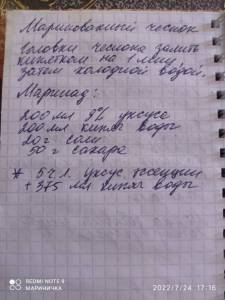 Маринованный чеснок
Головки чеснока залить
кипятком на 1 мин,
затем холодной водой.
Маринад:
200 мл 9% уксуса
200 мл кипяч воды
20 г соли
50 г сахара
* 5 ч.л. уксус эссенции
+ 375 мл кипяч воды
REDMI NOTE 9
МАРИНИЧКА
2022/7/24 17:16